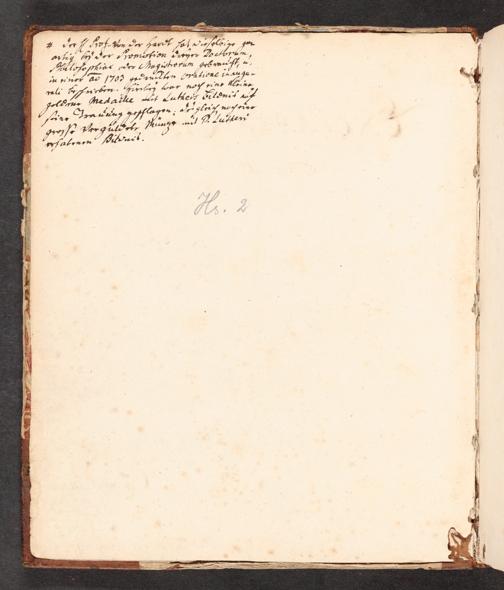 # der H. Prof. von der Hardt hat dieselbige gar
artig bei der Promotion dreyer Doctorum
Philosophiae oder Magistrorum gebraucht, u.
in einer ao 1703 gedruckten oratione inaugu-
rali beschrieben. hierbey war noch eine kleine
goldene Medaille mit Lutheri Bildniß auf
seine Trauung geschlagen. deßgleichen eine
große vergüldete Müntze mit D. Lutheri
erhabenem Bildniß.
Hs. 2